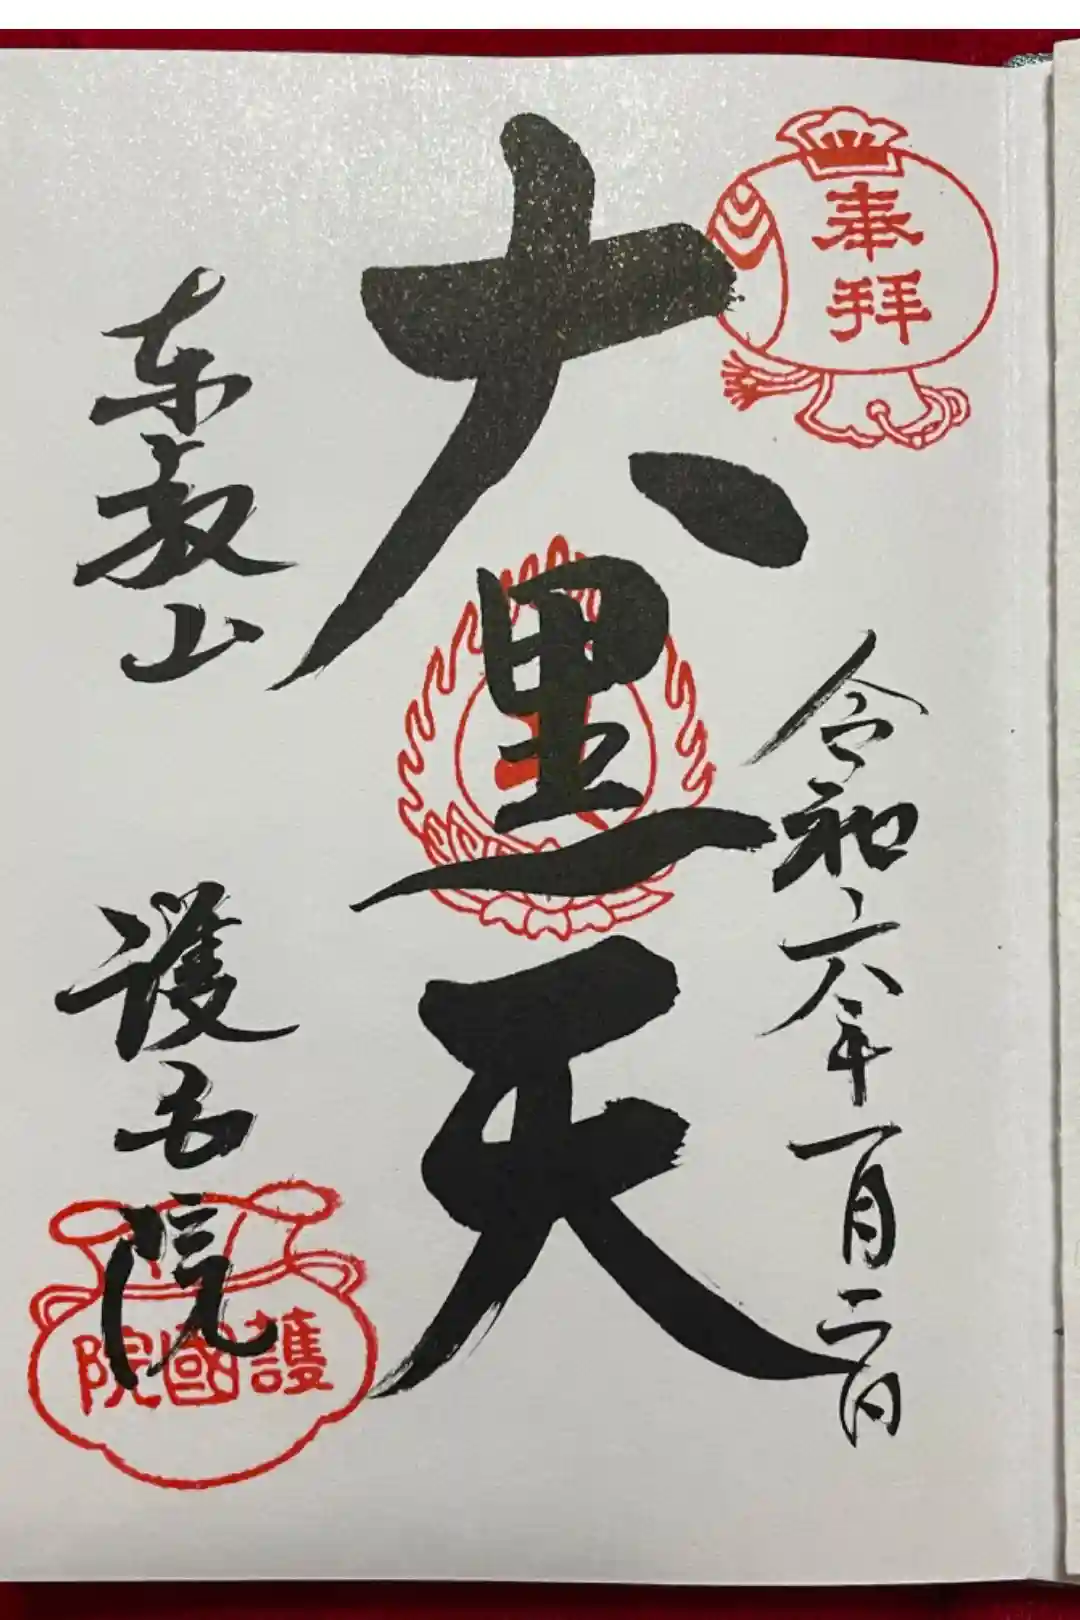 奉拝
令和六年一月二日
大黒天
東叡山
護国院
護國院